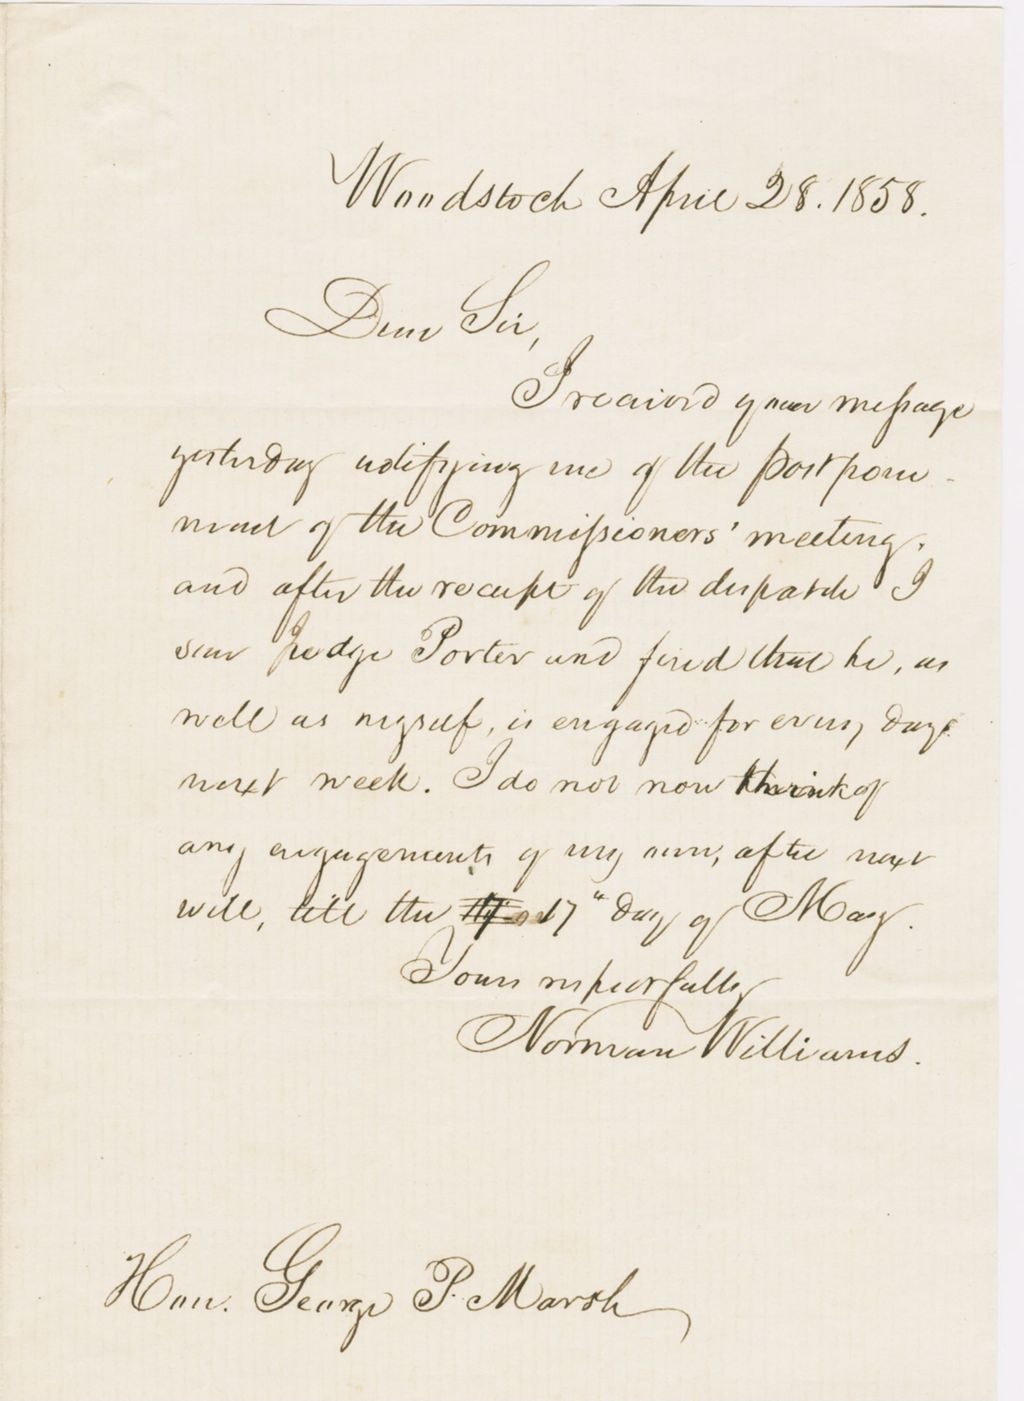 Woodstock April 28. 1858.
Dear Sir,
I received your message
yesterday notifying me of the postpone-
ment of the Commissioners' meeting,
and after the receipt of the dispatch I
saw Judge Porter and find that he, as
well as myself, is engaged for every day
next week. I do not now think of
any engagements of my own, after next
will, till the 17" day of May.
Yours respectfully
Norman Williams.
Hon. George P. Marsh